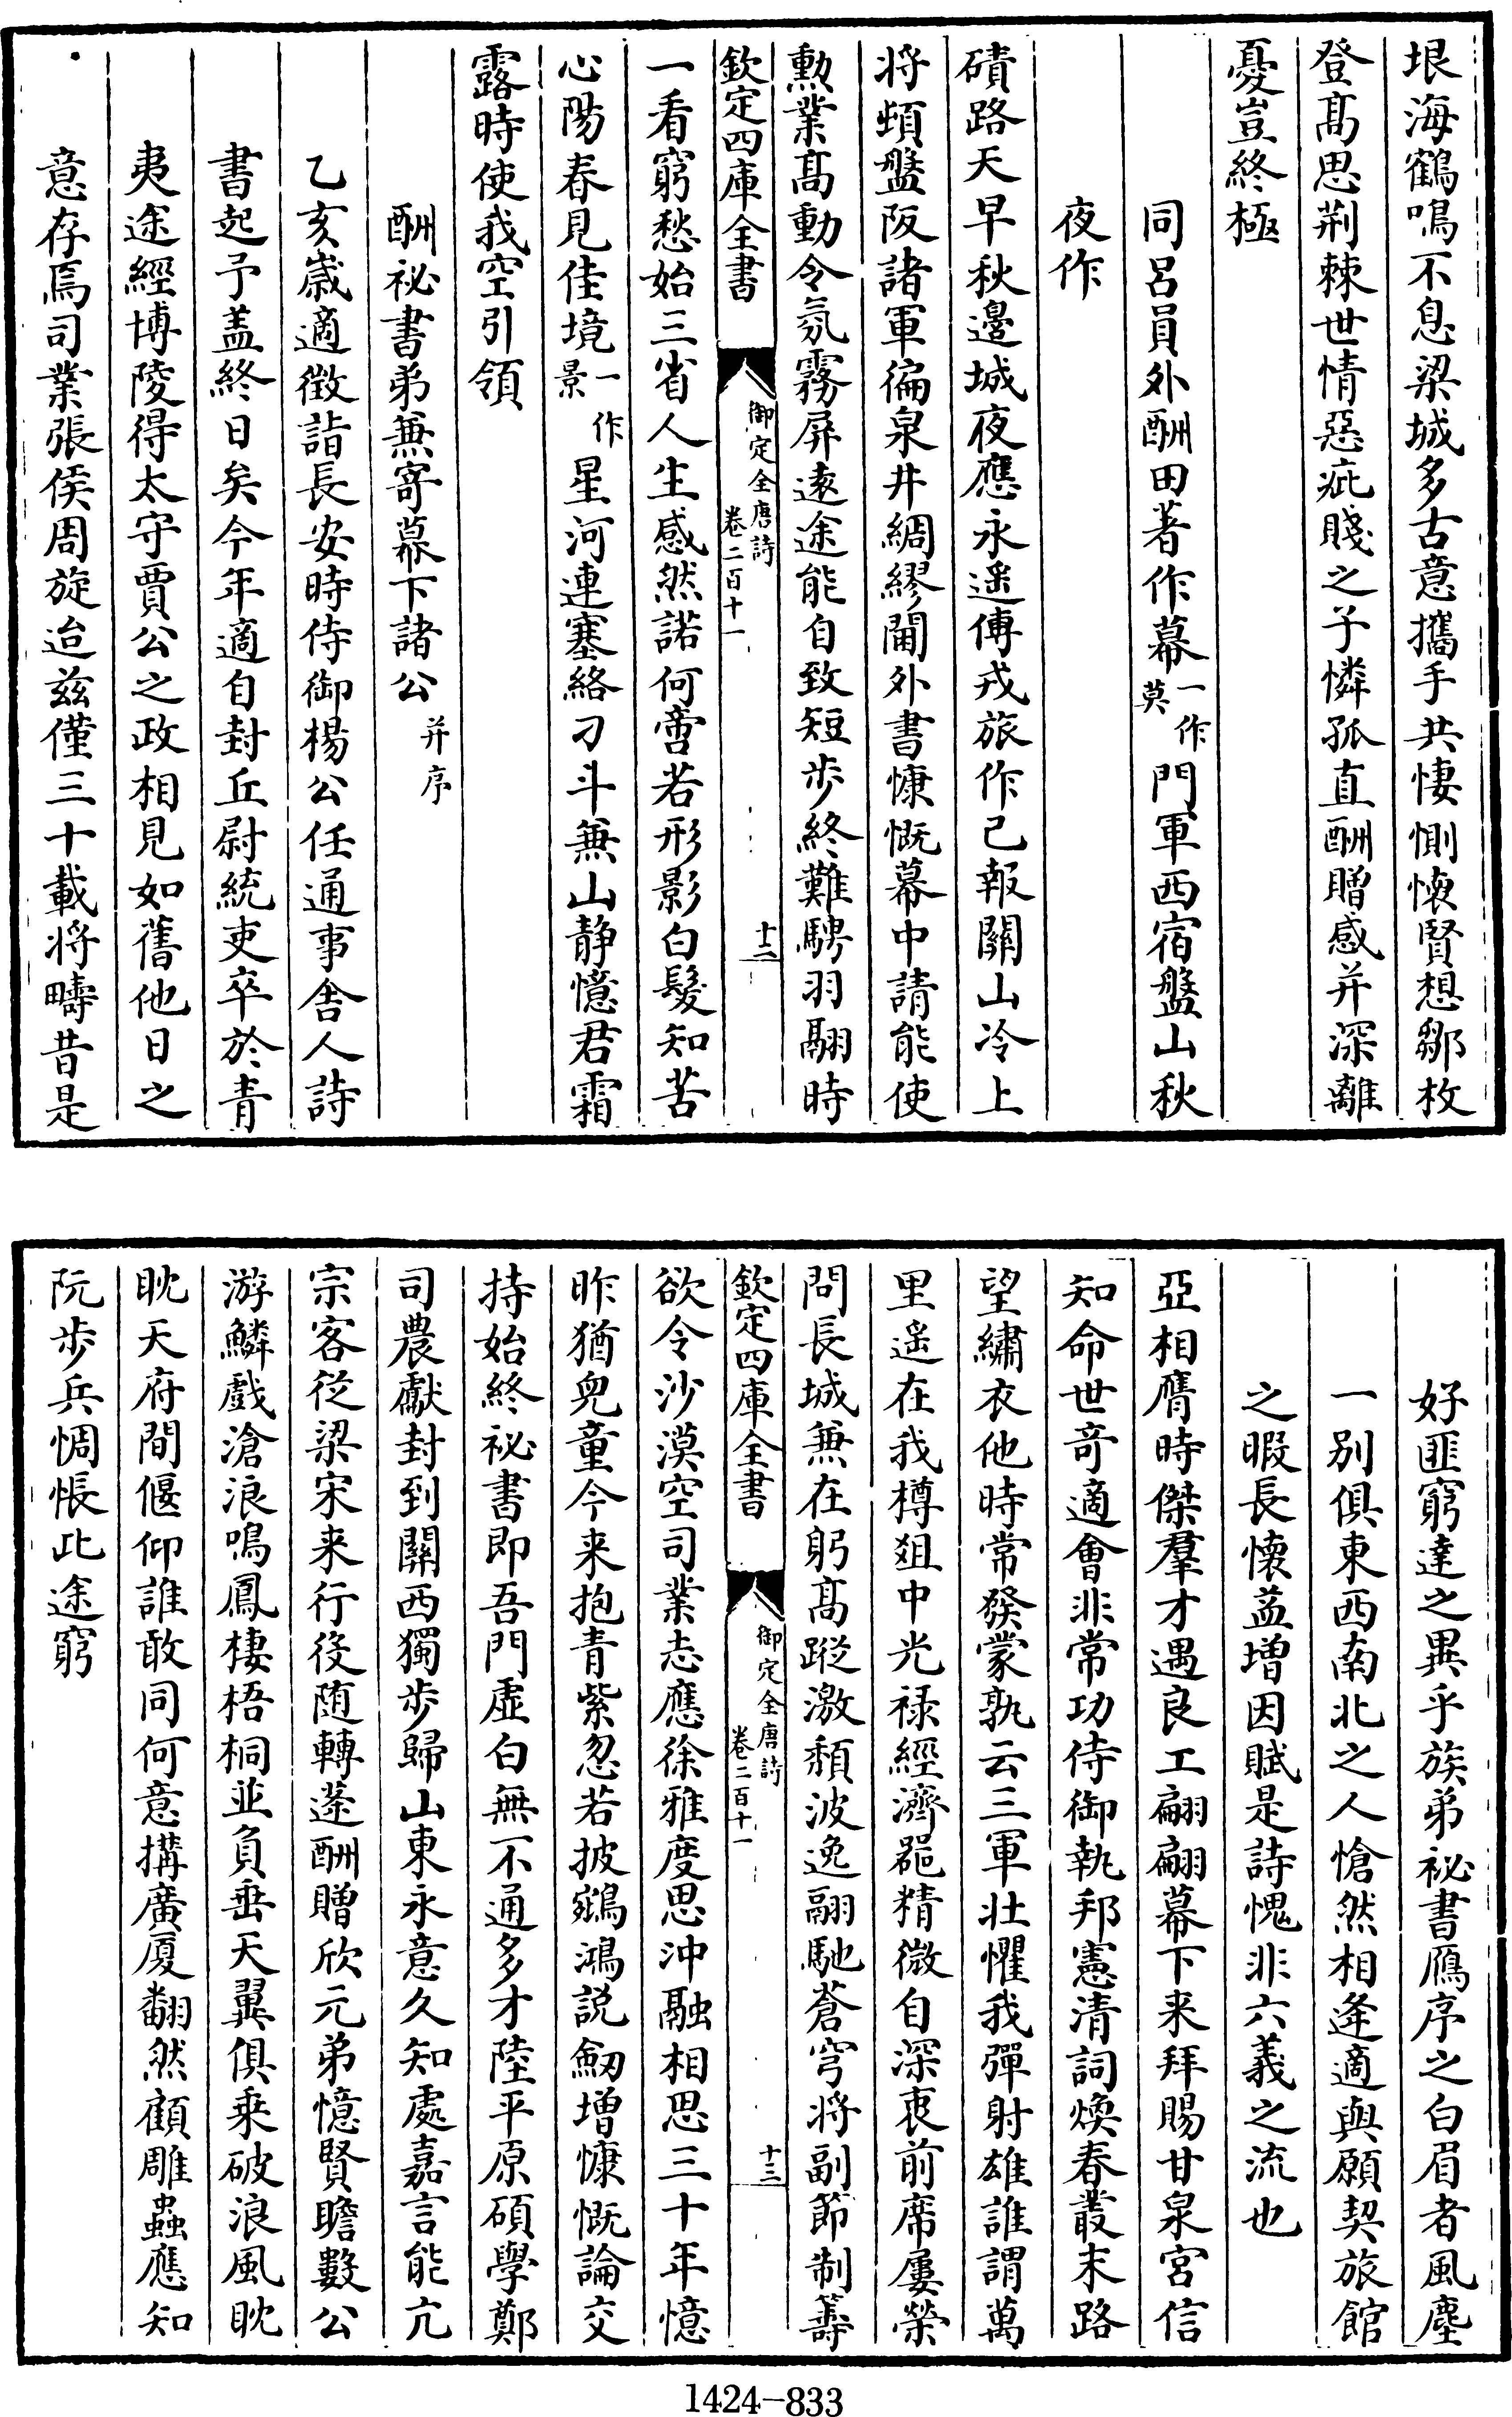 垠海鶴鳴不息梁城多古意攜手共悽惻懷賢想鄒枚
登髙思荆棘世情惡疵賤之子憐孤直酬贈感并深離
憂豈終極
同呂員外酬田著作幕一作莫門軍西宿盤山秋
夜作
磧路天早秋邊城夜應永遥傳戎旅作已報關山冷上
將頓盤阪諸軍徧泉井綢繆閫外書慷慨幕中請能使
勲業髙動令氛霧屏逺途能自致短步終難騁羽翮時
欽定四庫全書
御定全唐詩
卷二百十一
十二
一看窮愁始三省人生感然諾何啻若形影白髮知苦
心陽春見佳境一作景星河連塞絡刁斗兼山静憶君霜
露時使我空引領
酬祕書弟兼寄幕下諸公并序
乙亥歲適徵詣長安時侍御楊公任通事舍人詩
書起予盖終日矣今年適自封丘尉統吏卒於青
夷途經博陵得太守賈公之政相見如舊他日之
意存焉司業張侯周旋迨兹僅三十載將疇昔是
好匪窮達之異乎族弟祕書鴈序之白眉者風塵
一别俱東西南北之人愴然相逢適與願契旅館
之暇長懷益增因賦是詩愧非六義之流也
亞相膺時傑羣才遇良工翩翩幕下来拜賜甘泉宫信
知命世竒適會非常功侍御執邦憲清詞煥春叢末路
望繡衣他時常發蒙孰云三軍壯懼我彈射雄誰謂萬
里遥在我樽爼中光禄經濟器精微自深衷前席屢榮
問長城兼在躬髙蹤激頽波逸翮馳蒼穹將副節制籌
欽定四庫全書
御定全唐詩
卷二百十一
十三
欲令沙漠空司業志應徐雅度思沖融相思三十年憶
昨猶兒童今来抱青紫忽若披鵷鴻説劒增慷慨論交
持始終祕書即吾門虚白無不通多才陸平原碩學鄭
司農獻封到關西獨步歸山東永意久知處嘉言能亢
宗客從梁宋来行役随轉蓬酬贈欣元弟憶賢瞻數公
游鱗戲滄浪鳴鳳棲梧桐並負垂天翼俱乗破浪風眈
眈天府間偃仰誰敢同何意搆廣厦翻然顧雕蟲應知
阮步兵惆悵此途窮
1424-833